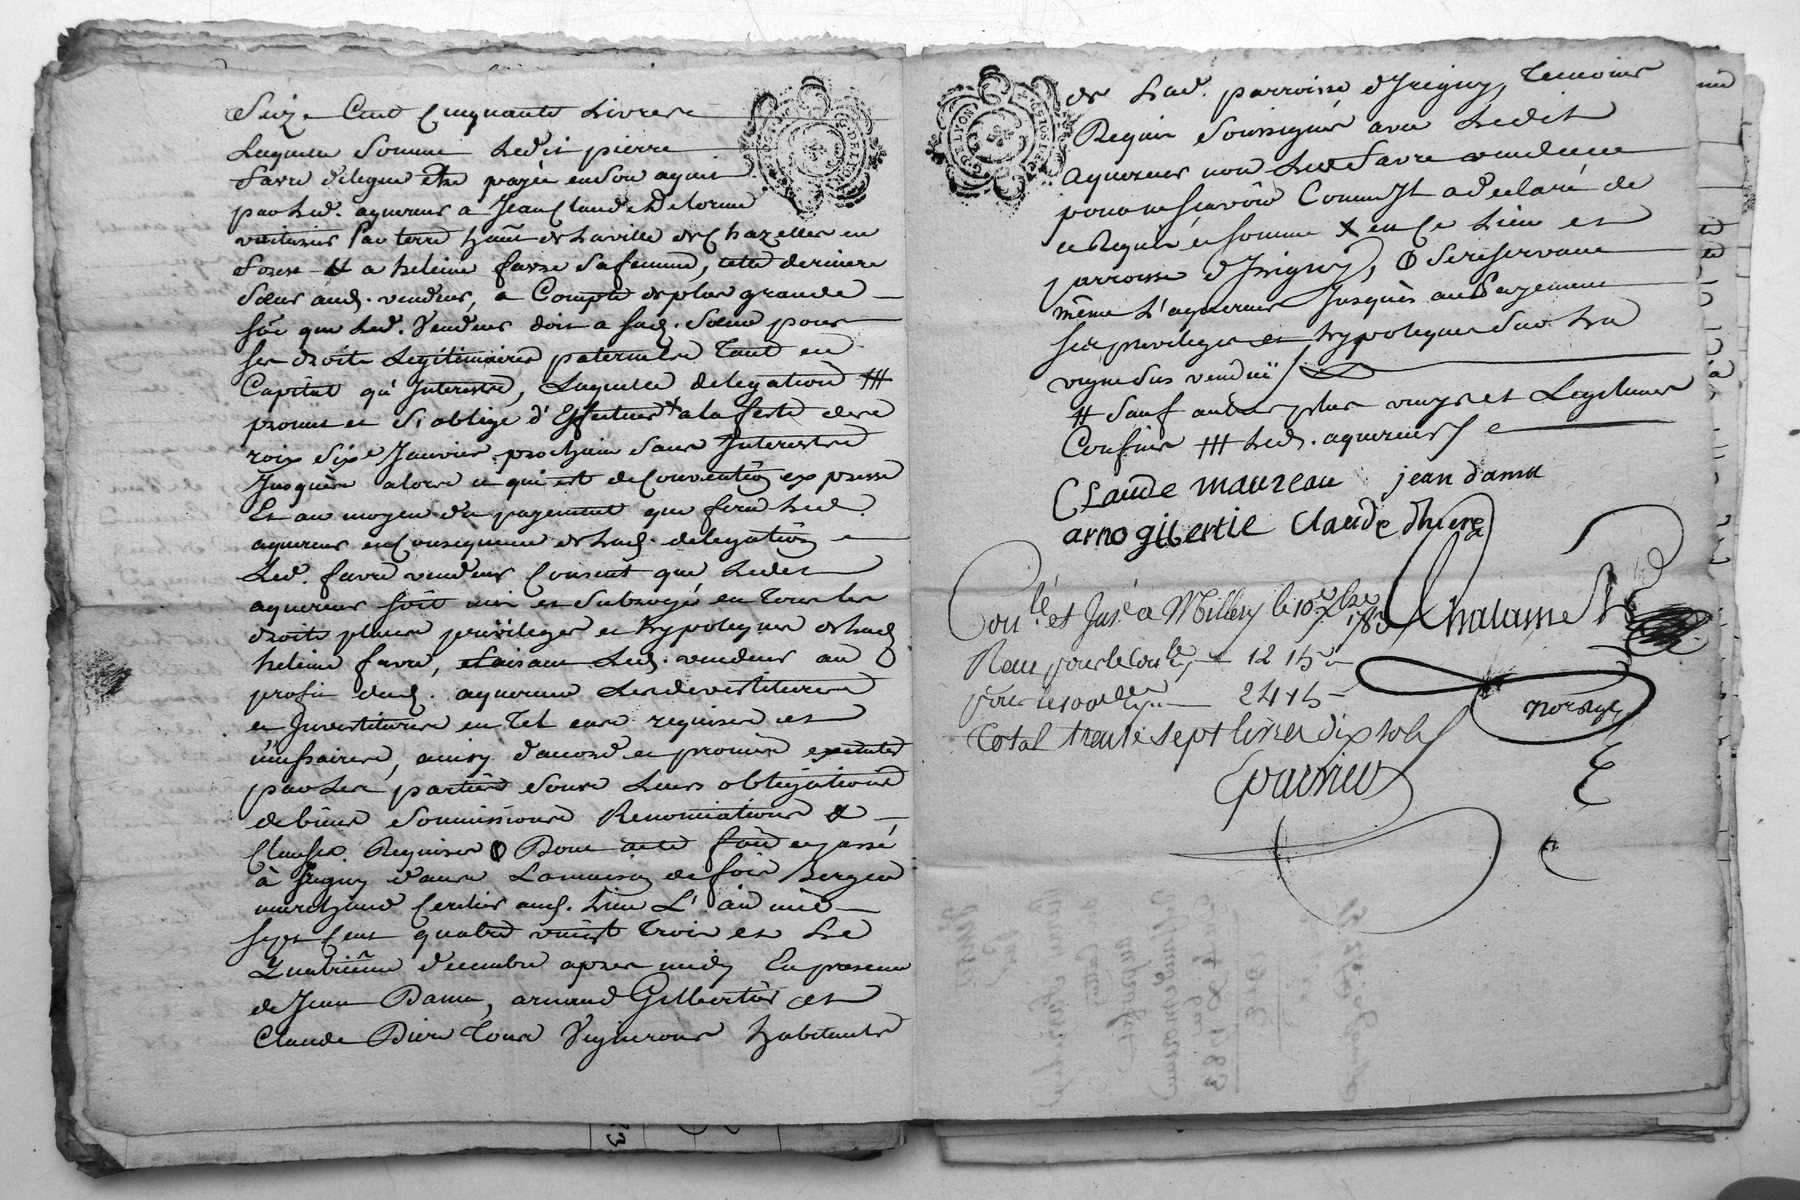 Seize Cent Cinquante Livres
Laquelle Somme Ledit pierre
favre delegue être payée en son aquit
par Led. aquereur a Jean Claude Delorme
voiturier par terre hañt de La ville de Chazelles en
forest # a heleine favre Sa femme, cette derniere
Sœur aud. vendeur, a Compte de plus grande
que Led. Vendeur doit a Sad. Sœur pour
Ses droits Legitimaires paternels Tant en
Capital qu'Interests, Laquelle delegation ###
promet et S'oblige d'Effectuer a la feste des
rois Six Janvier prochain Sans Interests
Jusques alors ce qui est de Convention expresse
Et au moyen du payement que fera Led.
aquereur en Consequence de Lad. delegation
Led. favre vendeur Consent que Ledit
aquereur soit mis et Subrogé en Tous les
droits places privileges et hypoteques de Lad.
heleine favre, et faisant Led. vendeur au
profit dud. aquereur Les devestitures
et Investitures en Tel cas requises et
necessaires, ainsy d'acord et promis executer
par Les parties Sous Leurs obligations
de biens Soumissions Renonciations &
Clauses Requises Φ Dont acte fait et passé
à Irigny dans La maison de
marchand aud. Lieu L'an mil
sept Cent quatre vingt Trois et Le
Quatrième decembre apres midy En presence
de Jean Dama, arnaud Gilbertier et
Claude Diere Tous Vignerons habitants
de Lad. parroisse d'Irigny, Temoins
Requis Soussignés avec Ledit
aquereur non Led. favre vendeur
pour ne sçavoir Comme Il a declaré de
ce Requis et Sommé X en Ce Lieu et
parroisse d'Irigny, Φ Se reservant
même L'aquereur Jusques au Payement
Ses privileges et hypoteques Sur La
vigne Sus vendue
# Sauf autres plus vrays et Legitimes
Confins ### Led. aquereur
CLaude mauzeau jean dama
arno gibertie Claude dhiere
Conlé et Insé à Millery le 10e xbre 1783
Chalamel
Reçu pour le Conlé 12 lt 15 s
pour le 100e 24 lt 15 s
notaire
Total trente sept livres dix sols